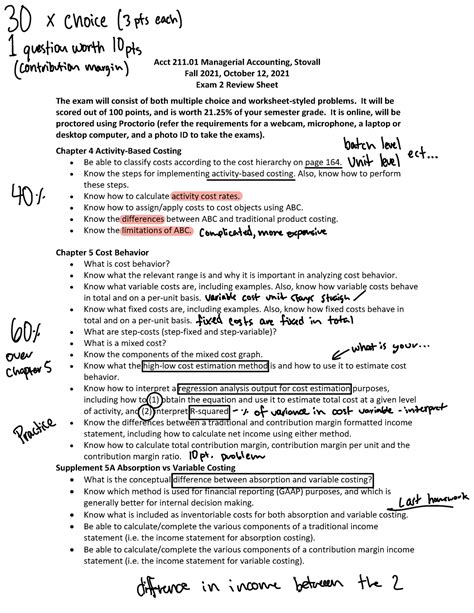 30 x choice (3 pts each)
1 question worth 10pts
(contribution margin)
Acct 211.01 Managerial Accounting, Stovall
Fall 2021, October 12, 2021
Exam 2 Review Sheet
The exam will consist of both multiple choice and worksheet-styled problems. It will be
scored out of 100 points, and is worth 21.25% of your semester grade. It is online, will be
proctored using Proctorio (refer the requirements for a webcam, microphone, a laptop or
desktop computer, and a photo ID to take the exams).
batch level
Chapter 4 Activity-Based Costing
• Be able to classify costs according to the cost hierarchy on page 164. Unit level ect...
• Know the steps for implementing activity-based costing. Also, know how to perform
these steps.
40%
• Know how to calculate activity cost rates.
• Know how to assign/apply costs to cost objects using ABC.
• Know the differences between ABC and traditional product costing.
• Know the limitations of ABC. Complicated, more expensive
Chapter 5 Cost Behavior
• What is cost behavior?
• Know what the relevant range is and why it is important in analyzing cost behavior.
• Know what variable costs are, including examples. Also, know how variable costs behave
in total and on a per-unit basis. variable cost unit stays straigh
• Know what fixed costs are, including examples. Also, know how fixed costs behave in
total and on a per-unit basis. fixed costs are fixed in total
60% over chapter 5
• What are step-costs (step-fixed and step-variable)?
• What is a mixed cost?
• Know the components of the mixed cost graph. what is your...
• Know what the high-low cost estimation method is and how to use it to estimate cost
behavior.
• Know how to interpret a regression analysis output for cost estimation purposes,
including how to (1) obtain the equation and use it to estimate total cost at a given level
of activity, and (2) interpret R-squared - % of variance in cost variable - interpret
Practice
• Know the differences between a traditional and contribution margin formatted income
statement, including how to calculate net income using either method.
• Know how to calculate total contribution margin, contribution margin per unit and the
contribution margin ratio. 10pt. problem
Supplement 5A Absorption vs Variable Costing
• What is the conceptual difference between absorption and variable costing?
• Know which method is used for financial reporting (GAAP) purposes, and which is
generally better for internal decision making. Last homework
• Know what is included as inventoriable costs for both absorption and variable costing.
• Be able to calculate/complete the various components of a traditional income
statement (i.e. the income statement for absorption costing).
• Be able to calculate/complete the various components of a contribution margin income
statement (i.e. the income statement for variable costing).
difference in income between the 2